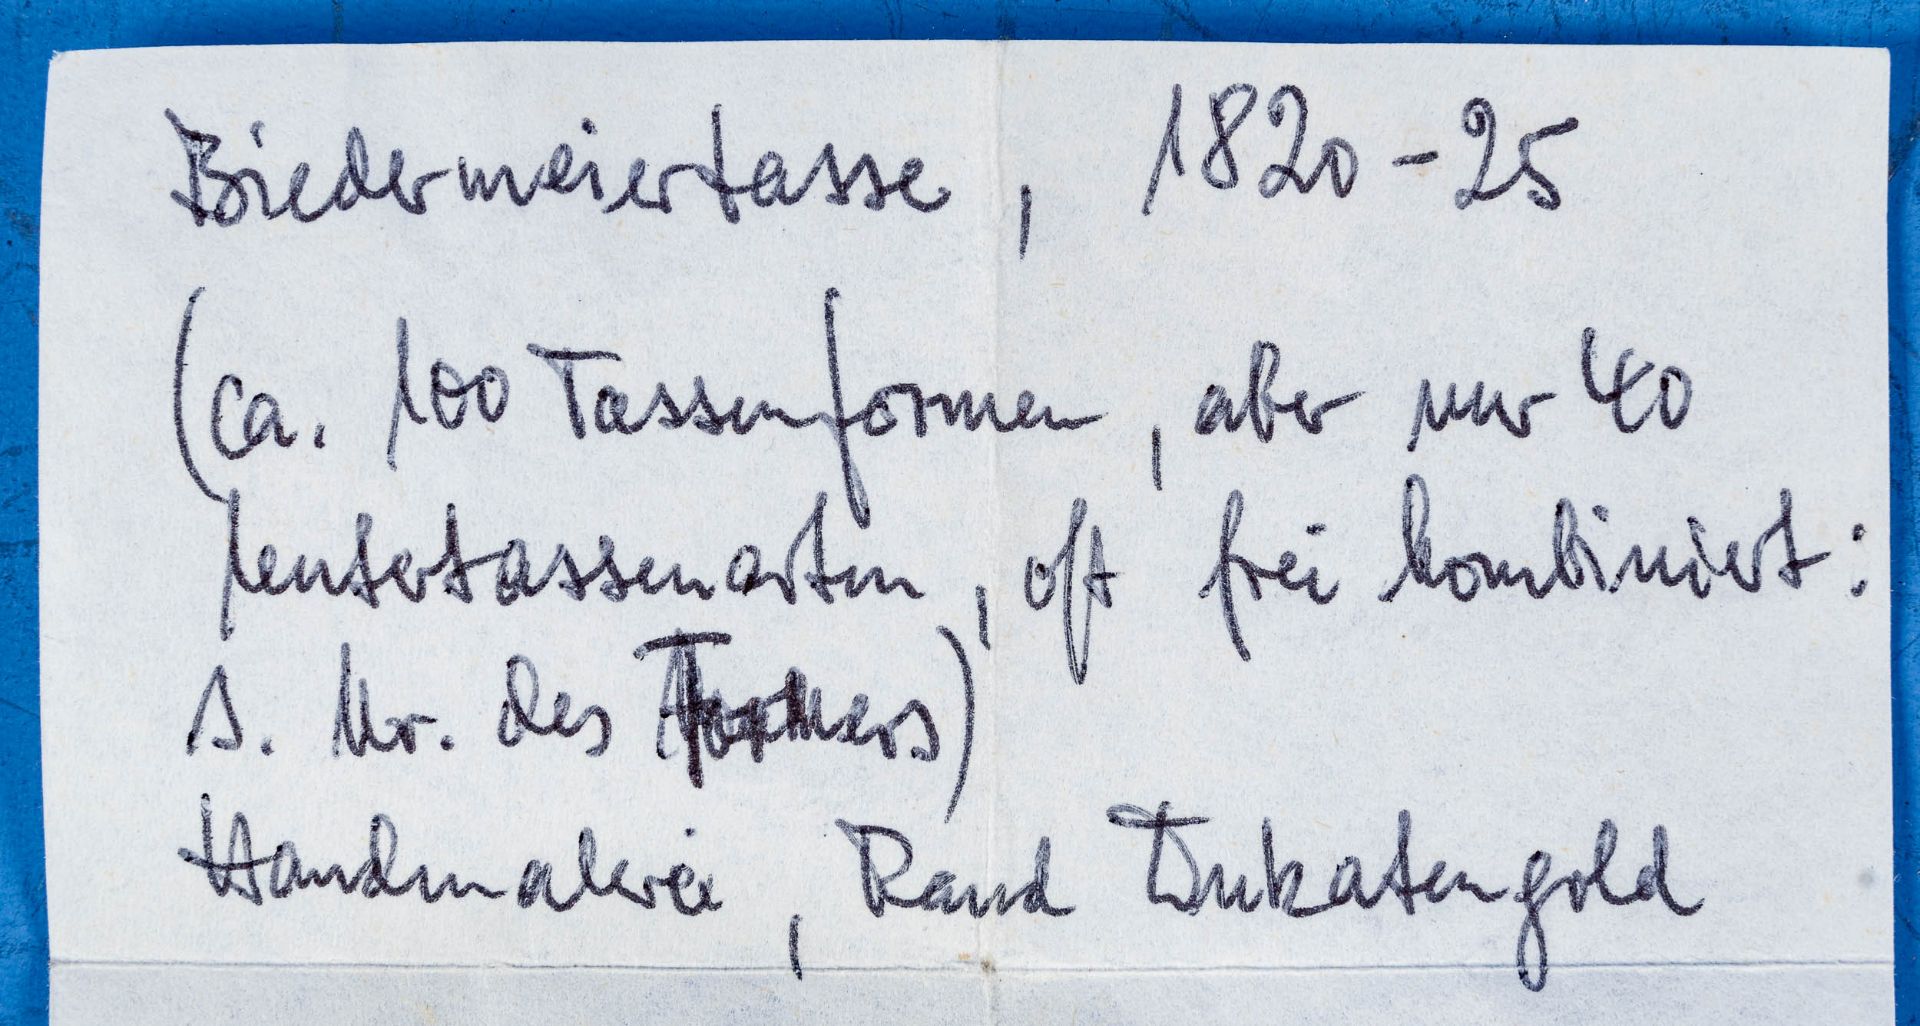 Biedermeiertasse, 1820-25
(ca. 100 Tassenformen, aber nur 40
Untertassenarten, oft frei kombiniert:
s. Nr. des Formers)
Handmalerei, Rand Dukatengold